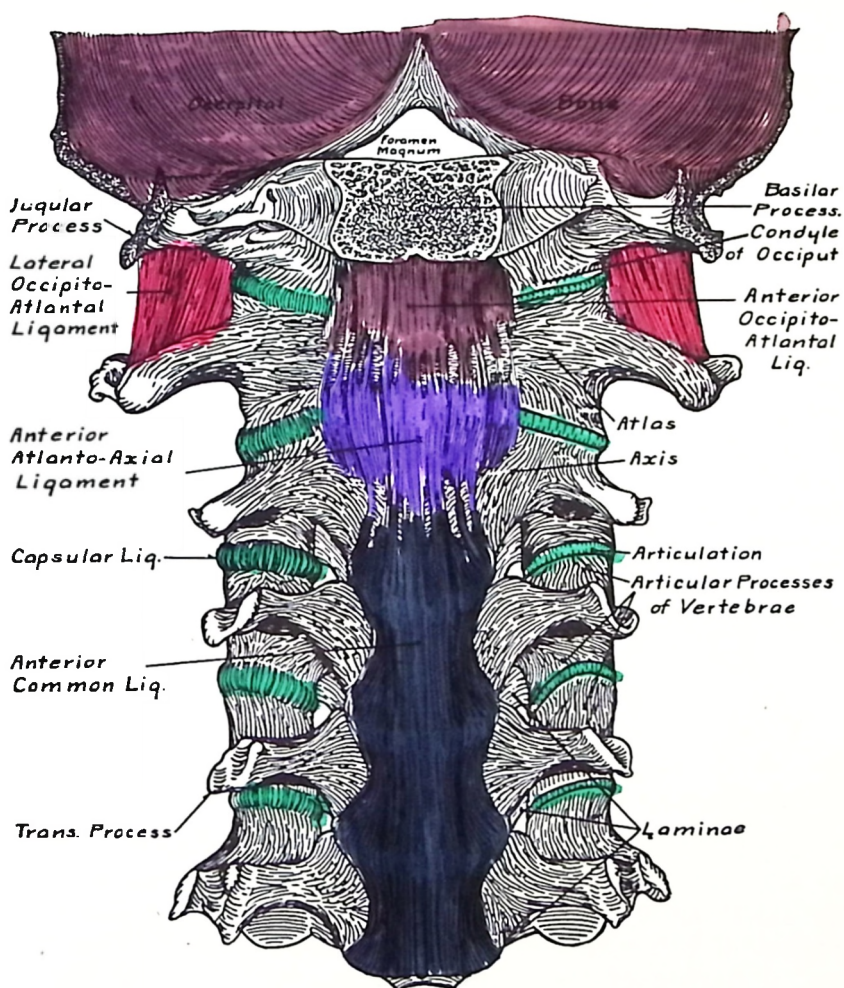 Occipital Bone
Foramen
Magnum
Jugular
Process
Lateral
Occipito-
Atlantal
Ligament
Anterior
Atlanto-Axial
Ligament
Capsular Lig.
Anterior
Common Lig.
Trans. Process
Basilar
Process.
Condyle
of Occiput
Anterior
Occipito-
Atlantal
Lig.
Atlas
Axis
Articulation
Articular Processes
of Vertebrae
Laminae